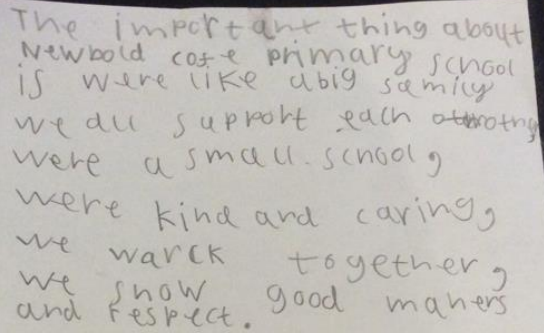 The important thing about
Newbold cofe primary school
is were like a big family
we all support each othe
were a small. school,
were kind and caring,
we warck together,
we show good maners
and respect.